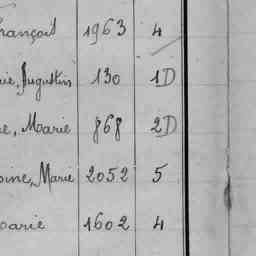 François 1963 4
Augustin 130 1D
Marie 868 2D
Marie 2052 5
Marie 1602 4